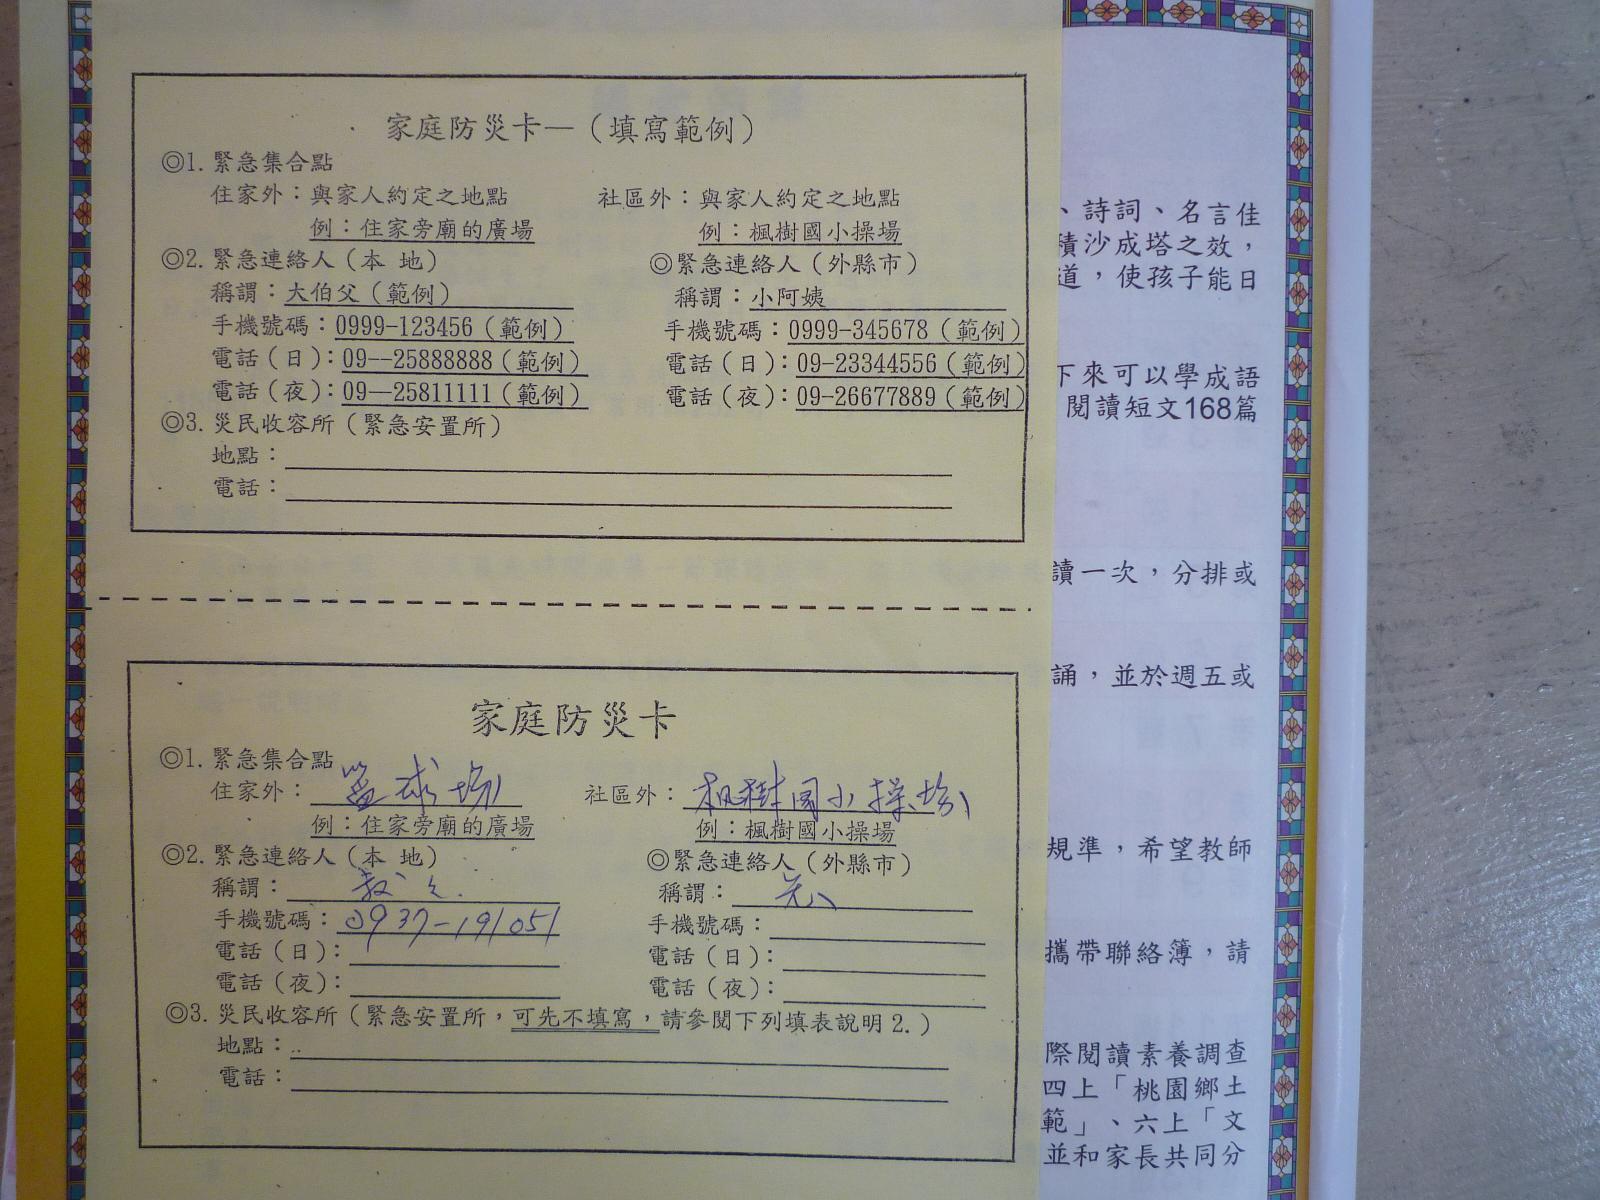 家庭防災卡—(填寫範例)
◎1. 緊急集合點
住家外：與家人約定之地點 社區外：與家人約定之地點
例：住家旁廟的廣場 例：楓樹國小操場
◎2. 緊急連絡人(本 地) ◎緊急連絡人(外縣市)
稱謂：大伯父(範例) 稱謂：小阿姨
手機號碼：0999-123456(範例) 手機號碼：0999-345678(範例)
電話(日)：09--25888888(範例) 電話(日)：09-23344556(範例)
電話(夜)：09--25811111(範例) 電話(夜)：09-26677889(範例)
◎3. 災民收容所(緊急安置所)
地點：
電話：
家庭防災卡
◎1. 緊急集合點
住家外：籃球場 社區外：楓樹國小操場
例：住家旁廟的廣場 例：楓樹國小操場
◎2. 緊急連絡人(本 地) ◎緊急連絡人(外縣市)
稱謂： 稱謂：
手機號碼：0937-191051 手機號碼：
電話(日)： 電話(日)：
電話(夜)： 電話(夜)：
◎3. 災民收容所(緊急安置所，可先不填寫，請參閱下列填表說明 2.)
地點：
電話：
、詩詞、名言佳
積沙成塔之效，
道，使孩子能日
下來可以學成語
閱讀短文168篇
讀一次，分排或
誦，並於週五或
規準，希望教師
攜帶聯絡簿，請
際閱讀素養調查
四上「桃園鄉土
範」、六上「文
並和家長共同分